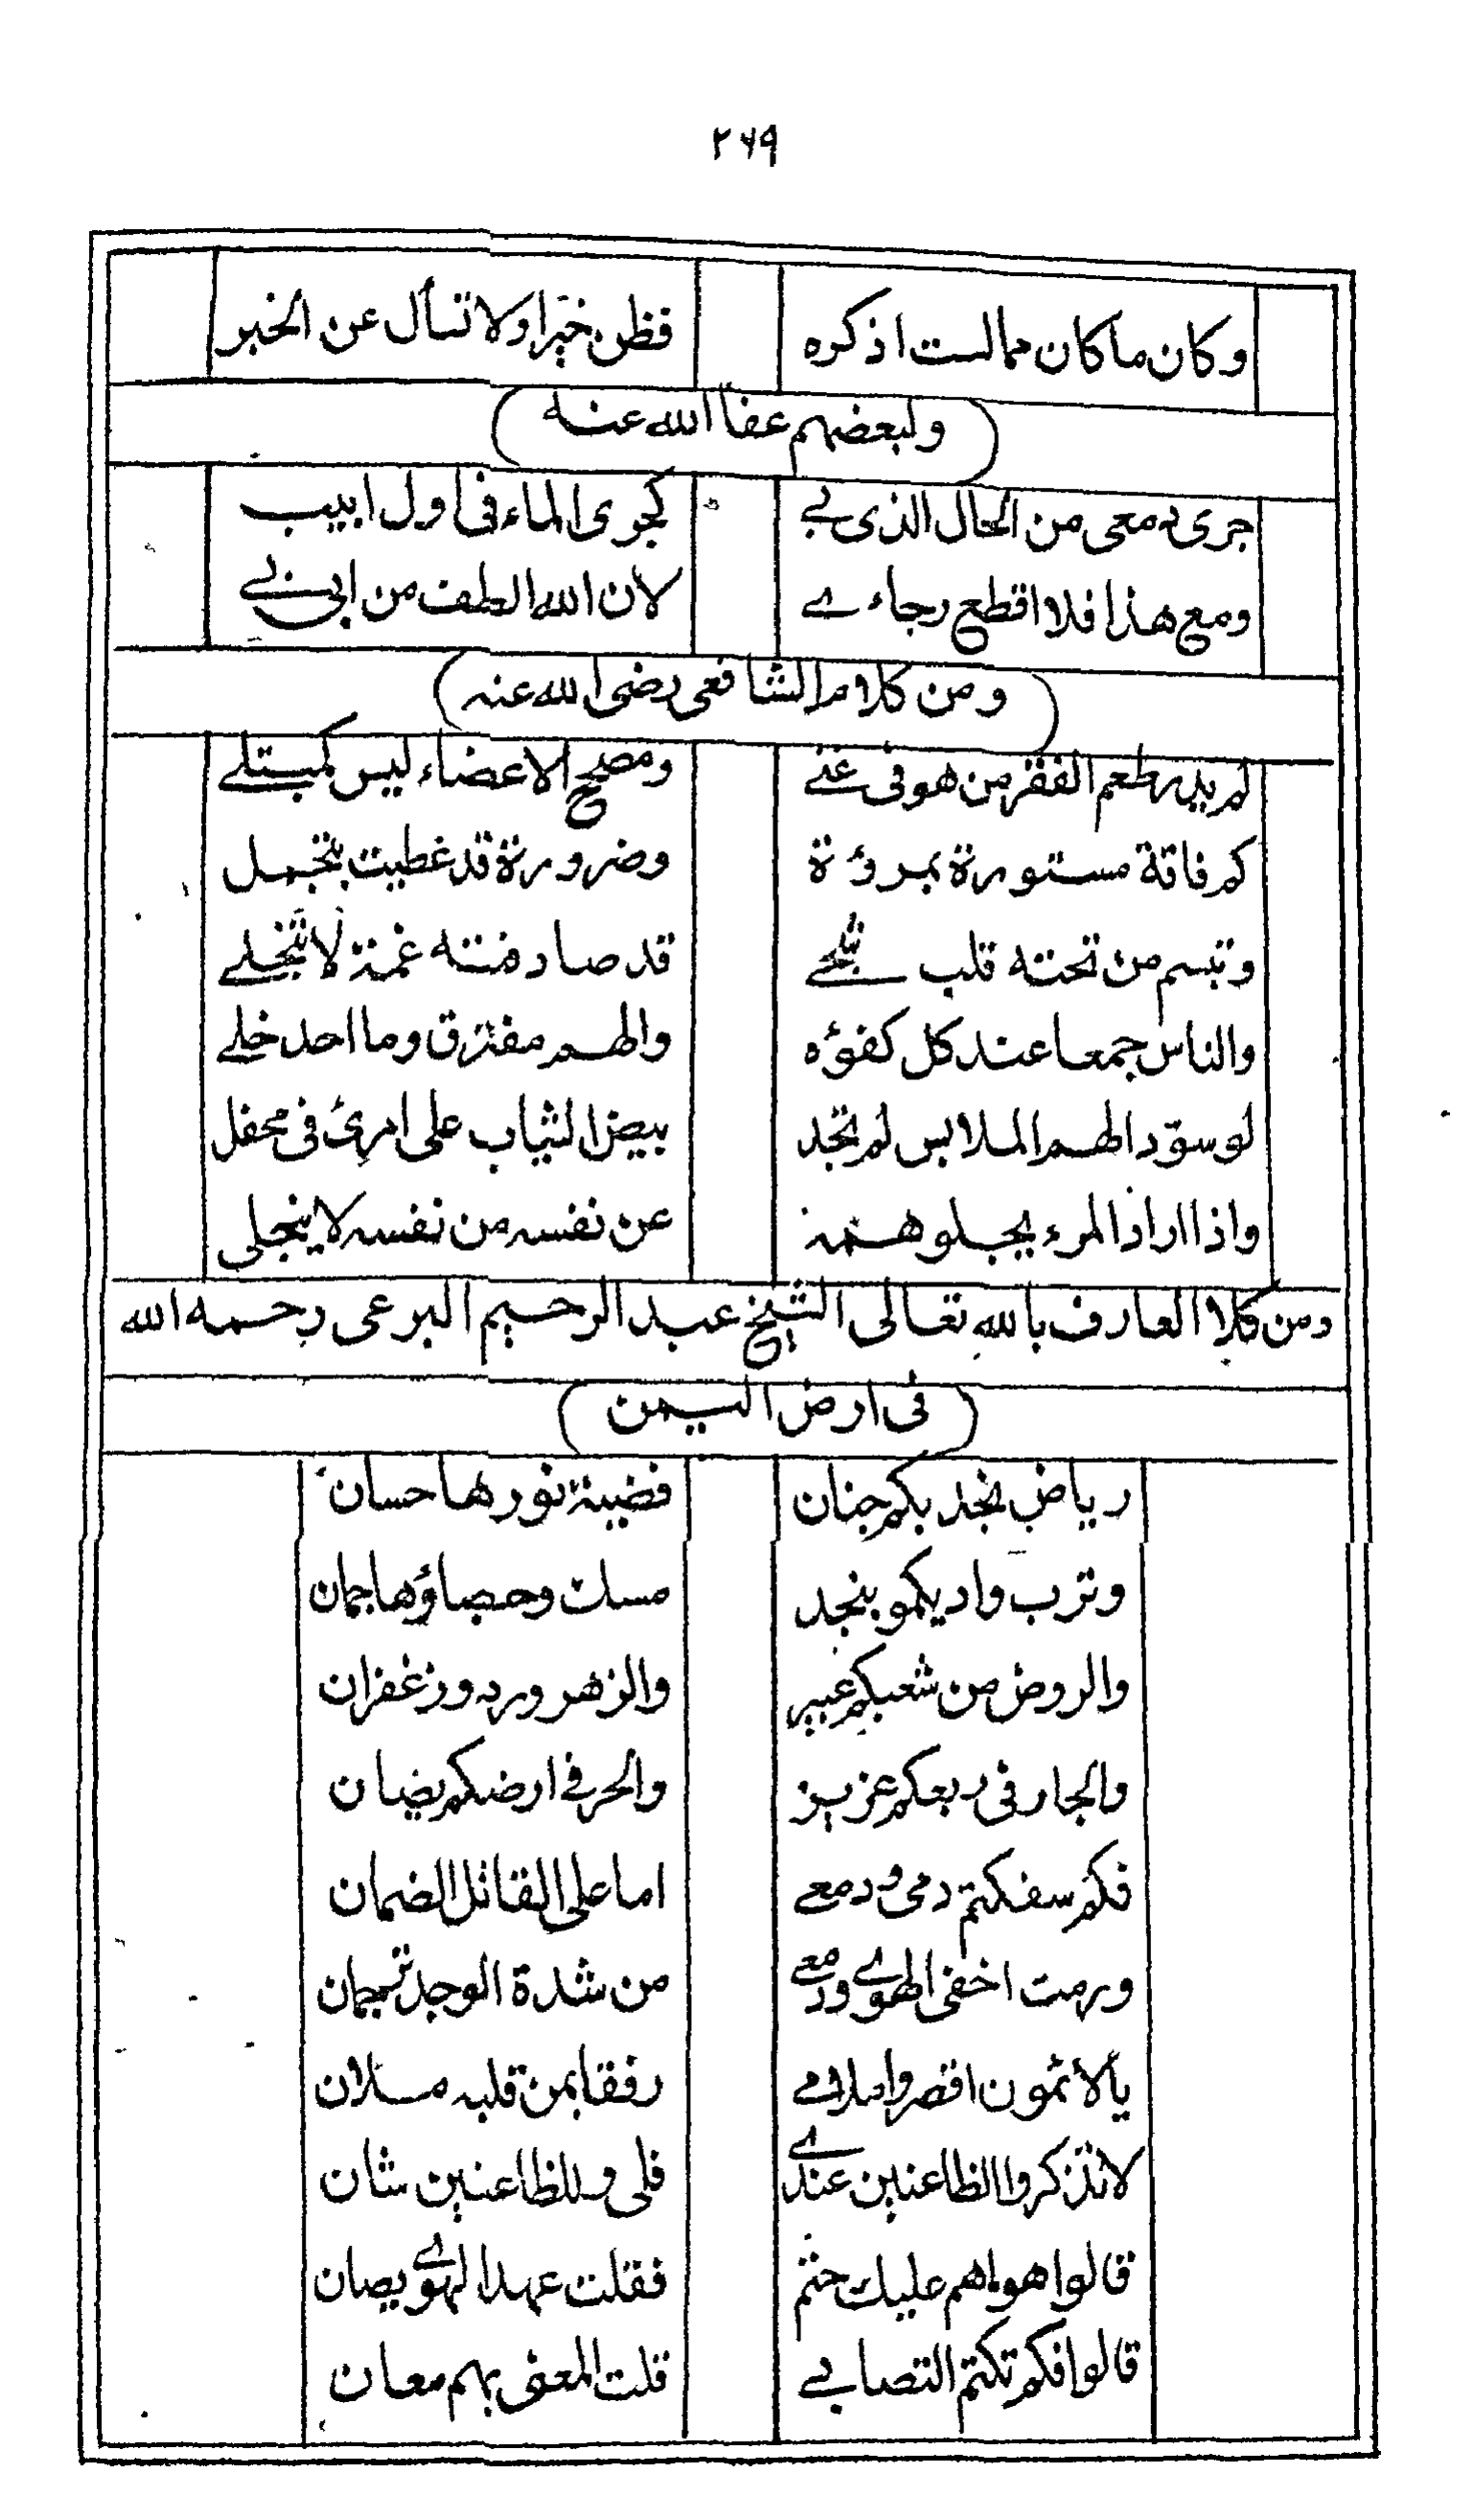 ٢٦٩
وكان ما كان مما لست اذكره فظن خيرا ولا تسأل عن الخبر
(ولبعضهم عفا الله عنه)
جرى دمعى من الحال الذى بے كجرى الماء فى اول ابيب
ومع هذا فلا اقطع رجاءے لان الله الطف من ابى بے
(ومن كلام الشافعى رضى الله عنه)
لم يدر طعم الفقر من هو فى غنے ومصحح الاعضاء ليس كمبتلے
كم فاقة مستورة بمروءة وضرورة قد غطيت بتجمل
وتبسم من تحته قلب شجے قد صادفته غمة لا تنجلے
والناس جمعا عند كل كفؤه والهم مفترق وما احد خلے
لو سوّد الهم الملابس لم تجد بيض الثياب على امرئ فى محفل
واذا اراد المرء يجلو همه عن نفسه من نفسه لا ينجلى
ومن كلام العارف بالله تعالى الشيخ عبد الرحيم البرعى رحمه الله
(فى ارض اليمن)
رياض نجد بكم جنان فضية نورها حسان
وترب واديكمو بنجد مسك وحصباؤها جمان
والروض من شعبكم عبير والزهر ورد وزعفران
والجار فى ربعكم عزيز والحر فے ارضكم يضان
فكم سفكتم دمى ودمعے اما على القاتل الضمان
ورمت اخفى الهوے ودمعے من شدة الوجد ترجمان
يا لائمون اقصروا ملامے رفقا بمن قلبه ملان
لا تذكروا الظاعنين عندے فلى وللظاعنين شان
قالوا هواهم عليك حتم فقلت عهد الهوے يصان
قالوا فكم تكتم التصابے قلت المعنى بهم معان